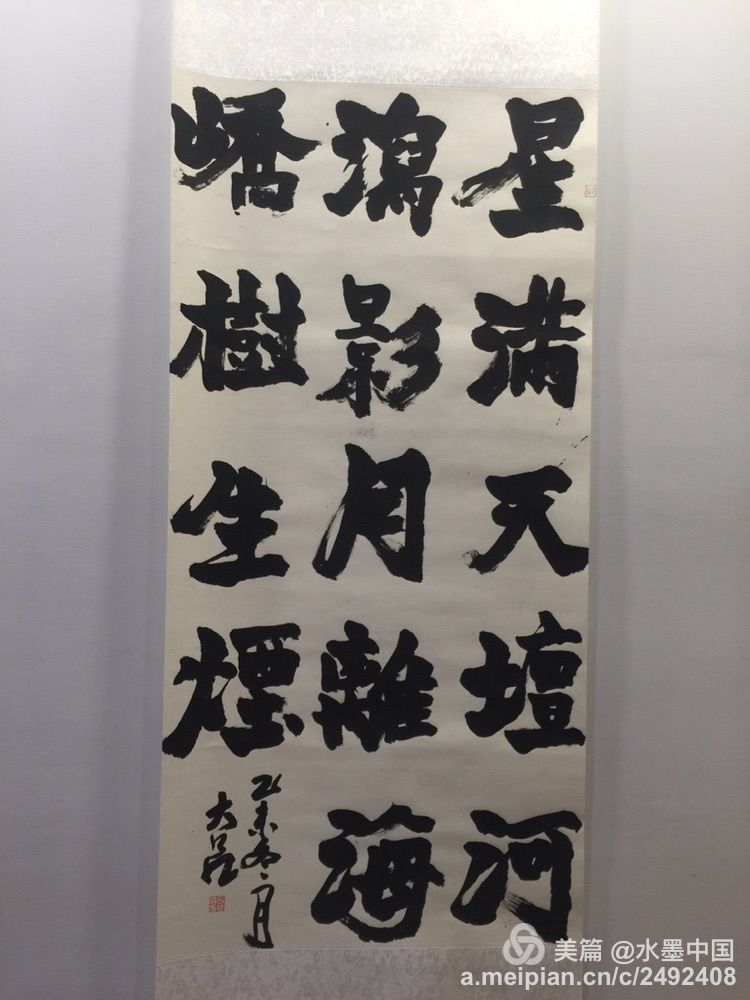 星滿天壇河
瀉影月離海
嶠樹生煙
乙未冬月
美篇 @水墨中国
a.meipian.cn/c/2492408